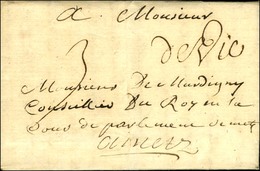 A Monsieur
3
de Vic
Monsieur De Mardigny
Conseiller Du Roy en la
Cour de parlement de metz
Ametz